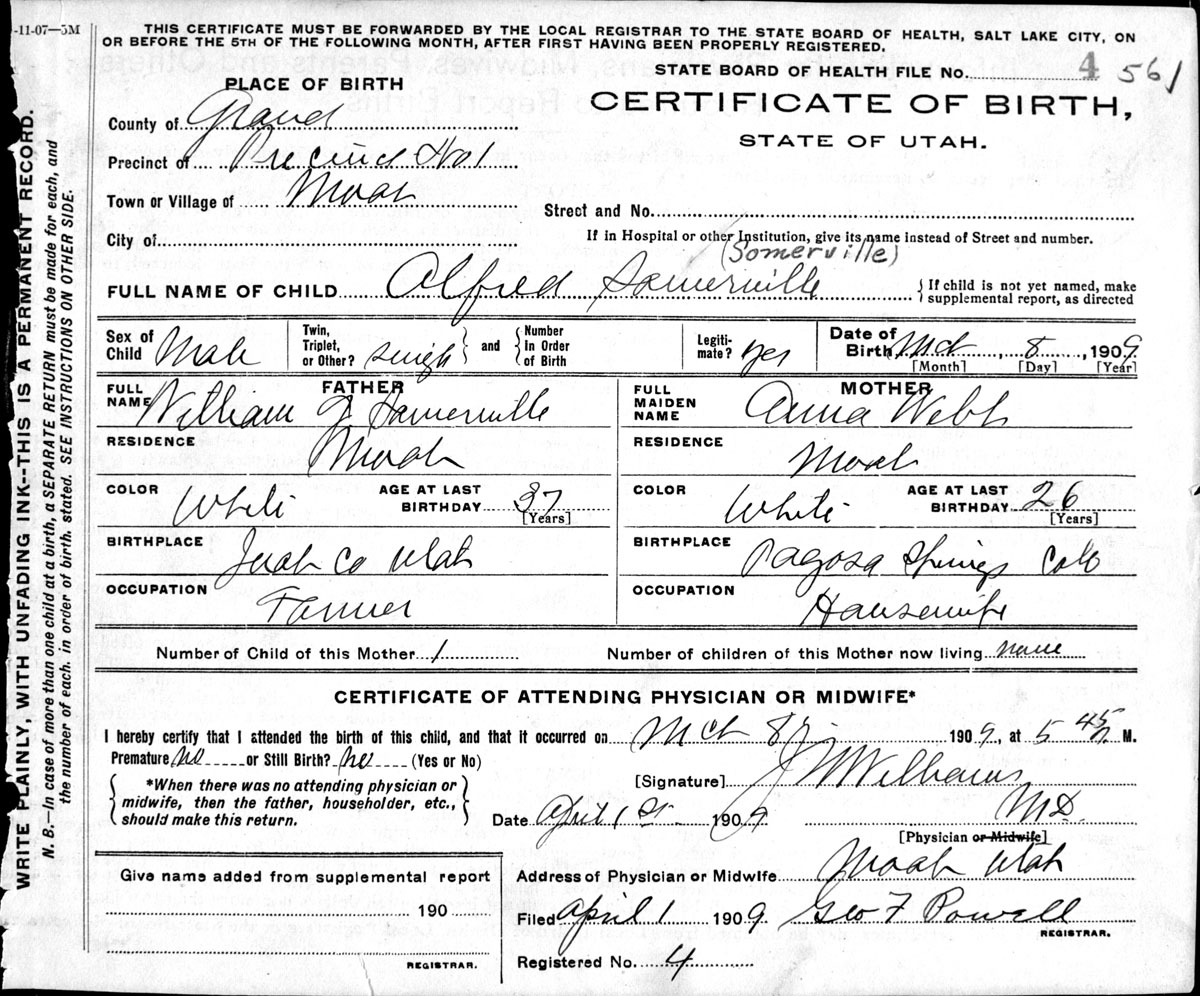 -11-07—5M
THIS CERTIFICATE MUST BE FORWARDED BY THE LOCAL REGISTRAR TO THE STATE BOARD OF HEALTH, SALT LAKE CITY, ON
OR BEFORE THE 5TH OF THE FOLLOWING MONTH, AFTER FIRST HAVING BEEN PROPERLY REGISTERED.
STATE BOARD OF HEALTH FILE No. 4 561
PLACE OF BIRTH
CERTIFICATE OF BIRTH,
STATE OF UTAH.
County of Grand
Precinct of Precinct No 1
Town or Village of Moab
Street and No.
City of
If in Hospital or other Institution, give its name instead of Street and number.
(Somerville)
FULL NAME OF CHILD Alfred Somerville { If child is not yet named, make
supplemental report, as directed
Sex of Child Male
Twin, Triplet, or Other? single and Number In Order of Birth
Legiti-mate? yes
Date of Birth, Mch 8, 1909
[Month] [Day] [Year]
FATHER
FULL NAME William J Somerville
RESIDENCE Moab
COLOR White AGE AT LAST BIRTHDAY 37 [Years]
BIRTHPLACE Juab Co Utah
OCCUPATION Farmer
MOTHER
FULL MAIDEN NAME Anna Webb
RESIDENCE Moab
COLOR White AGE AT LAST BIRTHDAY 26 [Years]
BIRTHPLACE Pagosa Springs Colo
OCCUPATION Housewife
Number of Child of this Mother 1 Number of children of this Mother now living none
CERTIFICATE OF ATTENDING PHYSICIAN OR MIDWIFE*
I hereby certify that I attended the birth of this child, and that it occurred on Mch 8, 1909, at 5 45 M.
Premature no or Still Birth? no (Yes or No)
*When there was no attending physician or
midwife, then the father, householder, etc.,
should make this return.
[Signature] J W Williams
M D.
Date April 1st 1909
[Physician or Midwife]
Address of Physician or Midwife Moab Utah
Filed April 1 1909 Geo F Powell
REGISTRAR.
Registered No. 4
Give name added from supplemental report
190
REGISTRAR.
WRITE PLAINLY, WITH UNFADING INK--THIS IS A PERMANENT RECORD.
N. B.—In case of more than one child at a birth, a SEPARATE RETURN must be made for each, and
the number of each, in order of birth, stated. SEE INSTRUCTIONS ON OTHER SIDE.